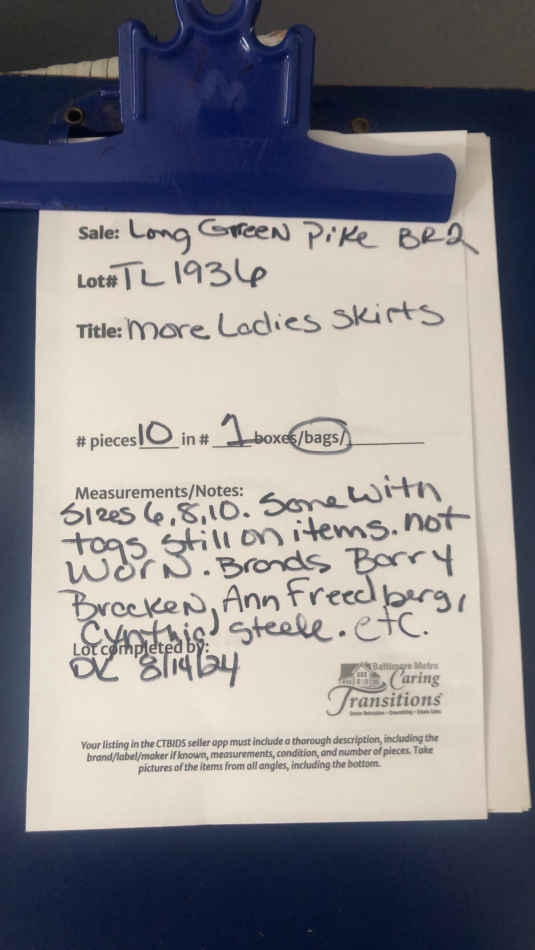 Sale: Long Green Pike BR2
Lot# TL 1936
Title: More Ladies Skirts
# pieces 10 in # 1 boxes/bags/
Measurements/Notes:
Sizes 6,8,10. Some with
tags still on items. not
worn. Brands Barry
Bracken, Ann Freedberg,
Cynthia Steele. etc.
Lot completed by:
DL 8/14/24
Baltimore Metro
Caring
Transitions
Your listing in the CTBIDS seller app must include a thorough description, including the
brand/label/maker if known, measurements, condition, and number of pieces. Take
pictures of the items from all angles, including the bottom.